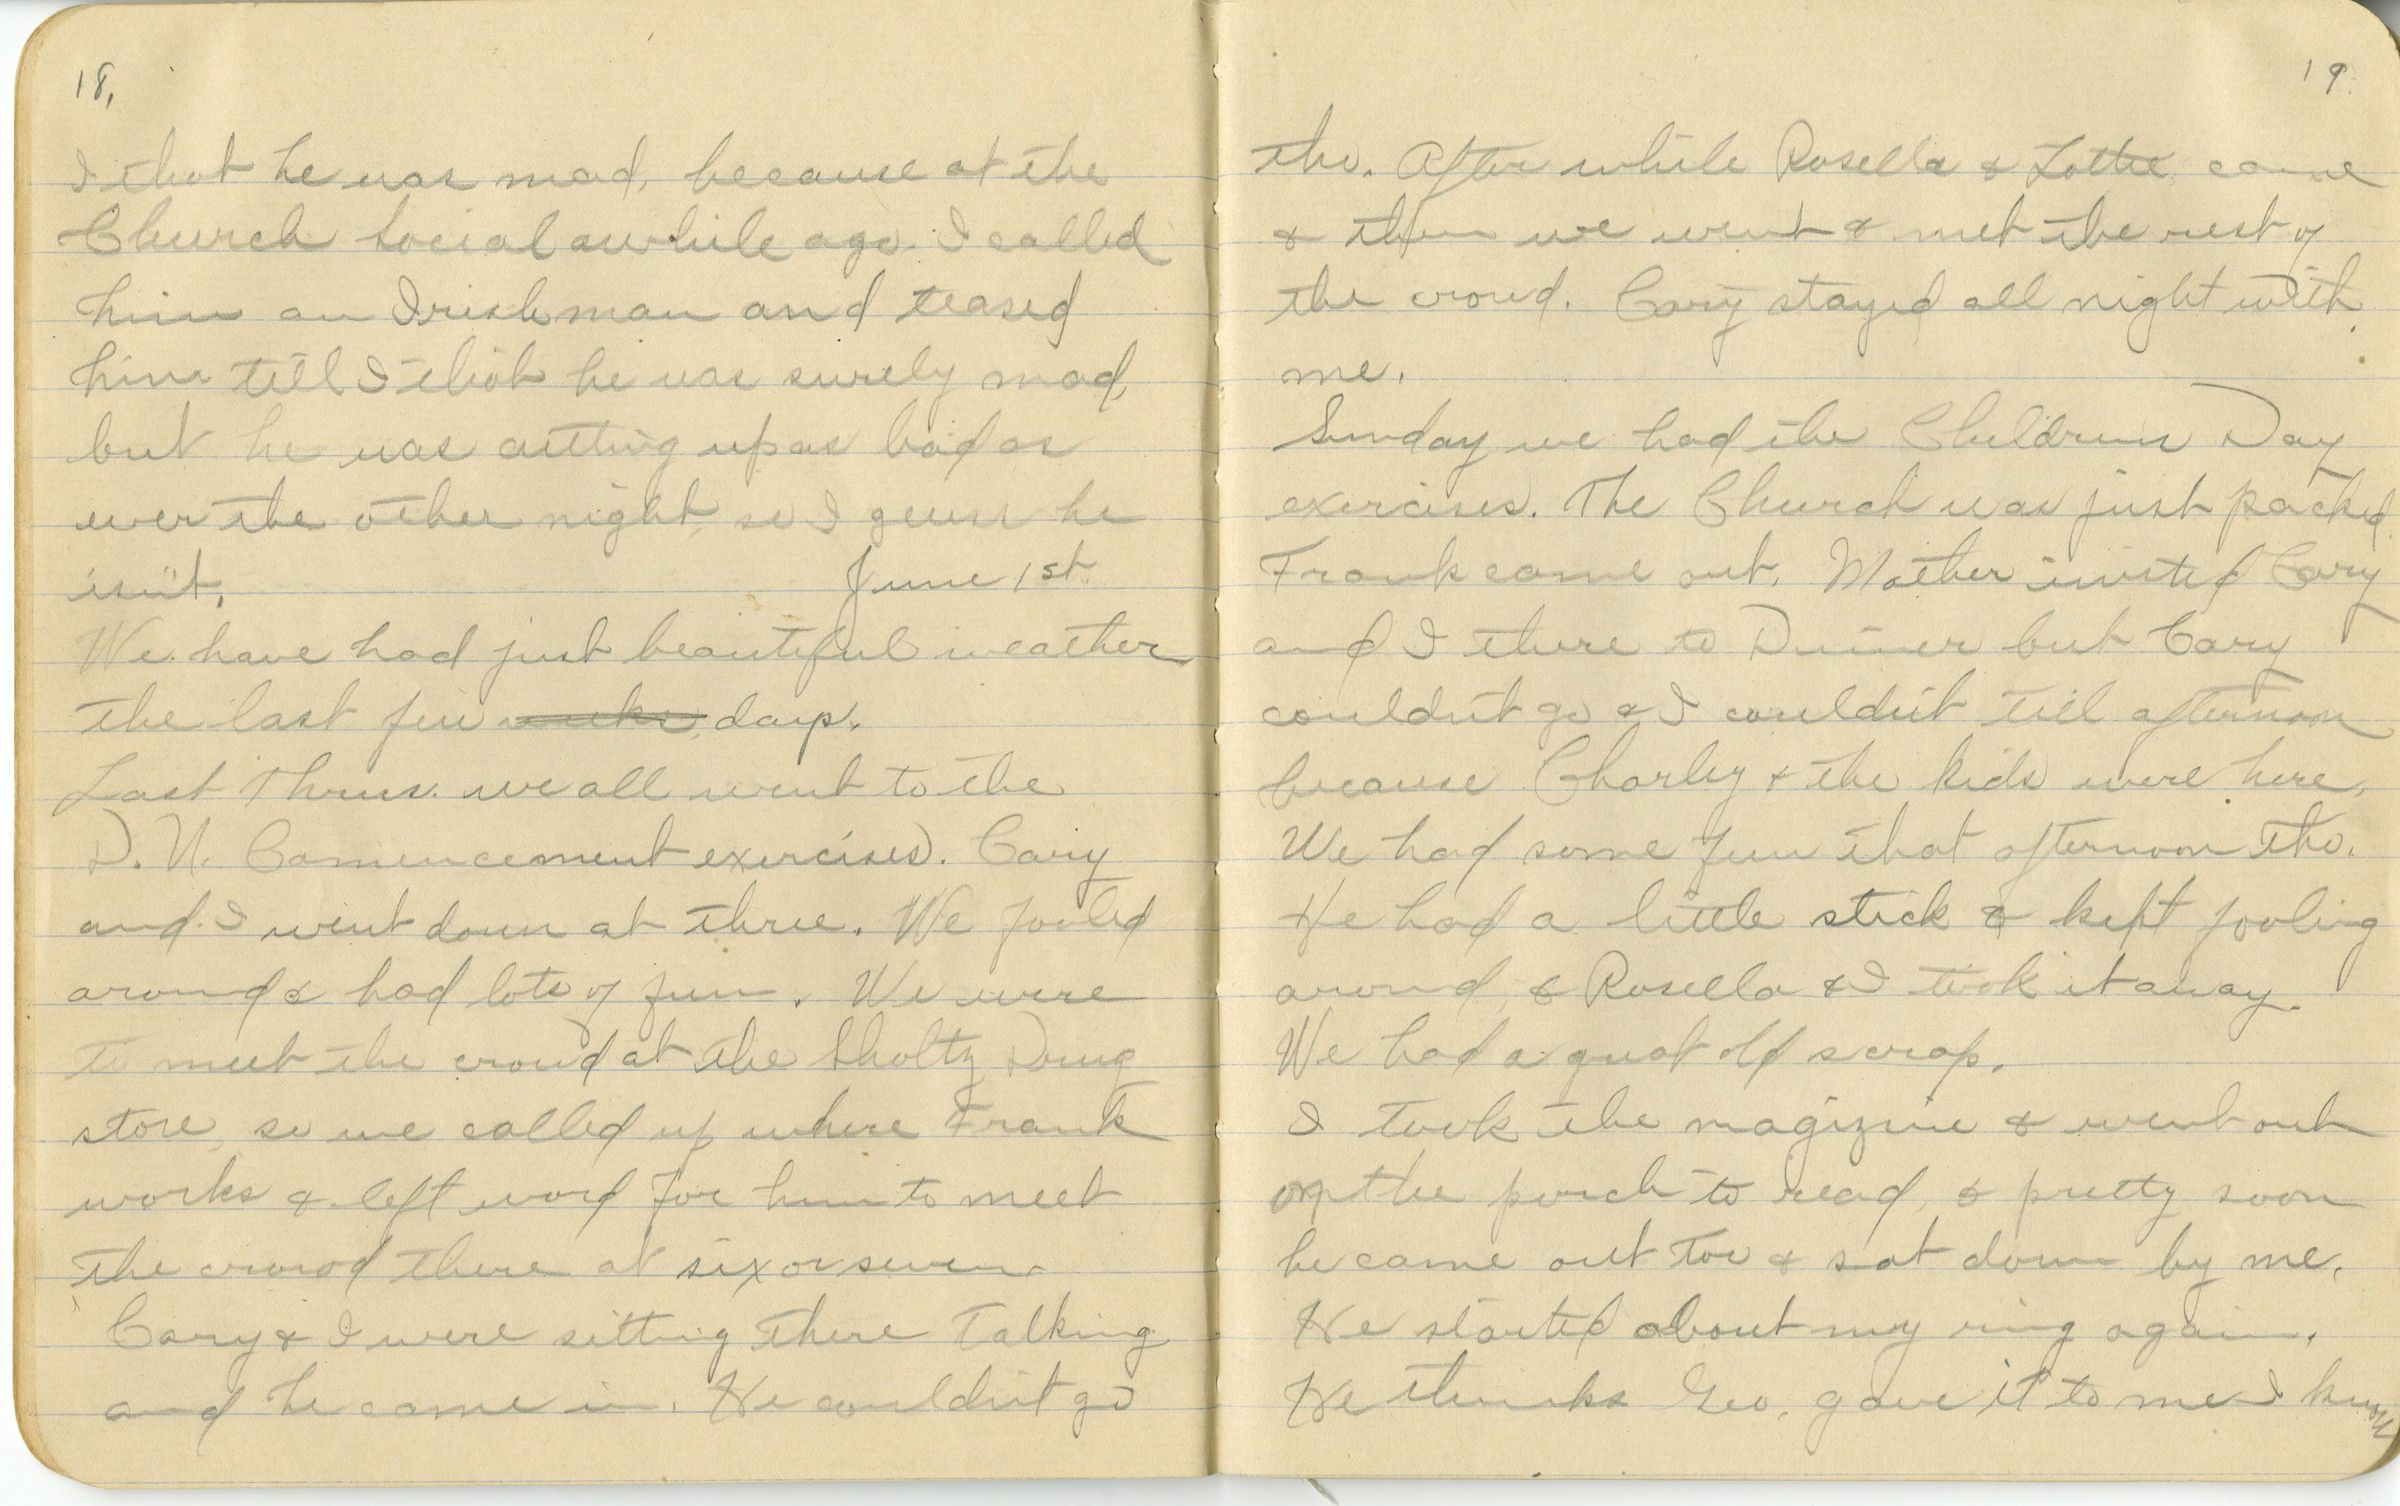 18,
I that he was mad, because at the
Church Social awhile ago I called
him an Irishman and teased
him till I thot he was surely mad,
but he was cutting up as bad as
ever the other night, so I guess he
isn't.
June 1st.
We have had just beautiful weather
the last few weeks, days.
Last Thurs. we all went to the
D. U. Comencement exercises. Cary
and I went down at three. We fooled
around & had lots of fun. We were
to meet the crowd at the Sholtz Drug
store, so we called up where Frank
works & left word for him to meet
the crowd there at six or seven.
Cary & I were sitting there talking
and he came in. He couldn't go
19.
tho. After while Rosella & Lottie came
& then we went & met the rest of
the crowd. Cary stayed all night with
me.
Sunday we had the Childrens Day
exercises. The Church was just packed.
Frank came out. Mother invited Cary
and I there to Dinner but Cary
couldn't go & I couldn't till afternoon
because Charley & the kids were here.
We had some fun that afternoon tho.
He had a little stick & kept fooling
around, & Rosella & I took it away.
We had a great old scrap.
I took the magizine & went out
on the porch to read, & pretty soon
he came out too & sat down by me.
He started about my ring again.
He thinks Geo. gave it to me I know